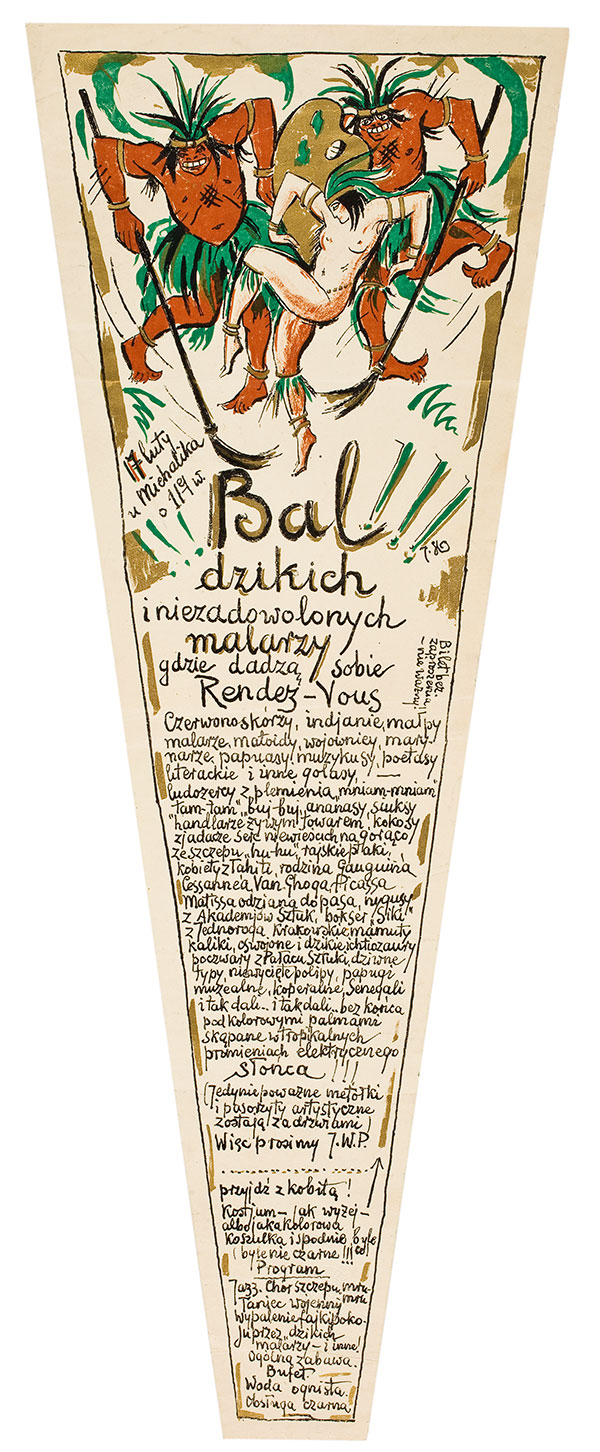 17 luty
u Michalika
o 1/2 9 w.
Bal
dzikich
i niezadowolonych
malarzy
gdzie dadzą sobie
Rendez-Vous
Bilet bez
zaproszenia
- nie ważny!!
Czerwonoskórzy, indjanie, małpy
malarze, matoidy, wojownicy, mary-
narze, papuasy, muzykusy, poetasy
literackie i inne golasy, —
ludożercy z plemienia „mniam-mniam"
„tam-tam" „buj-buj, ananasy, siuksy
"handlarze żywym towarem, kokosy
zjadacze serc niewieścich na gorąco,
ze szczepu „hu-hu", rajskie ptaki,
kobiety z Tahiti, rodzina Gauguina,
Cessannea Van Ghoga, Picassa
Matissa odziana do pasa, nygusy
z Akademjów Sztuk, bokser „Siki"
z Jednoroga, Krakowskie mamuty
kaliki, oswojone i dzikie ichtiozaury
poczwary z Pałacu Sztuki, dziwne
typy, niewycięte polipy, papugi
muzealne, koperalne, Senegali
i tak dali.. i tak dali.. bez końca
pod kolorowymi palmami
skąpane w tropikalnych
promieniach elektrycznego
słońca!!!
(Jedynie poważne metołki
i pasorzyty artystyczne
zostają za drzwiami)
Więc prosimy J.W.P.
przyjdź z kobitą!
Kostjum - jak wyżej -
albo jaka kolorowa
koszulka i spodnie byle co
(byle nie czarne!!!
Program
Jazz. Chór szczepu mru-mru
Taniec wojenny
wypalenie fajki poko-
ju przez „dzikich
malarzy - i inne!
Ogólna zabawa.
Bufet.
Woda ognista.
Obsługa czarna